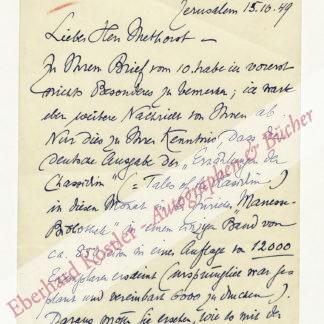 Jerusalem 15.10.49
Lieber Herr Methorst —
Zu Ihrem Brief vom 10. habe ich vorerst
nichts Besonderes zu bemerken; ich warte
aber weitere Nachricht von Ihnen ab.
Nur dies zu Ihrer Kenntnis, dass die
deutsche Ausgabe der „Erzählungen der
Chassidim" (= Tales of the Hasidim)
in diesem Monat in Zürich „Manesse-
Bibliothek" in einem einzigen Band von
ca. 850 Seiten in einer Auflage von 12000
Exemplaren erscheint (ursprünglich war ge-
plant und vereinbart 6000 zu drucken).
Daraus mögen Sie ersehen, wie es mit der
Eberhard Köstler Autographen & Bücher